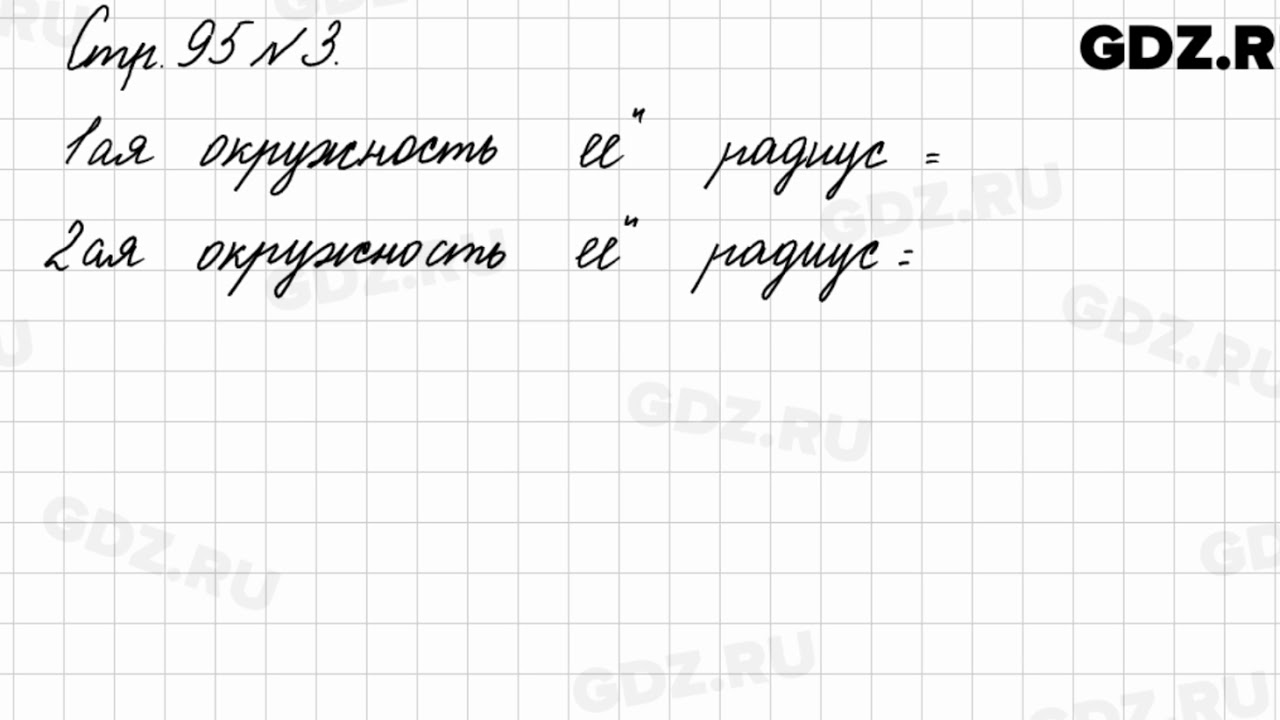 Стр. 95 № 3.
GDZ.R
1ая окружность ее" радиус =
2ая окружность ее" радиус =
GDZ.RU
GDZ.RU
GDZ.RU
GDZ.RU
GDZ.RU
GDZ.RU
GDZ.RU